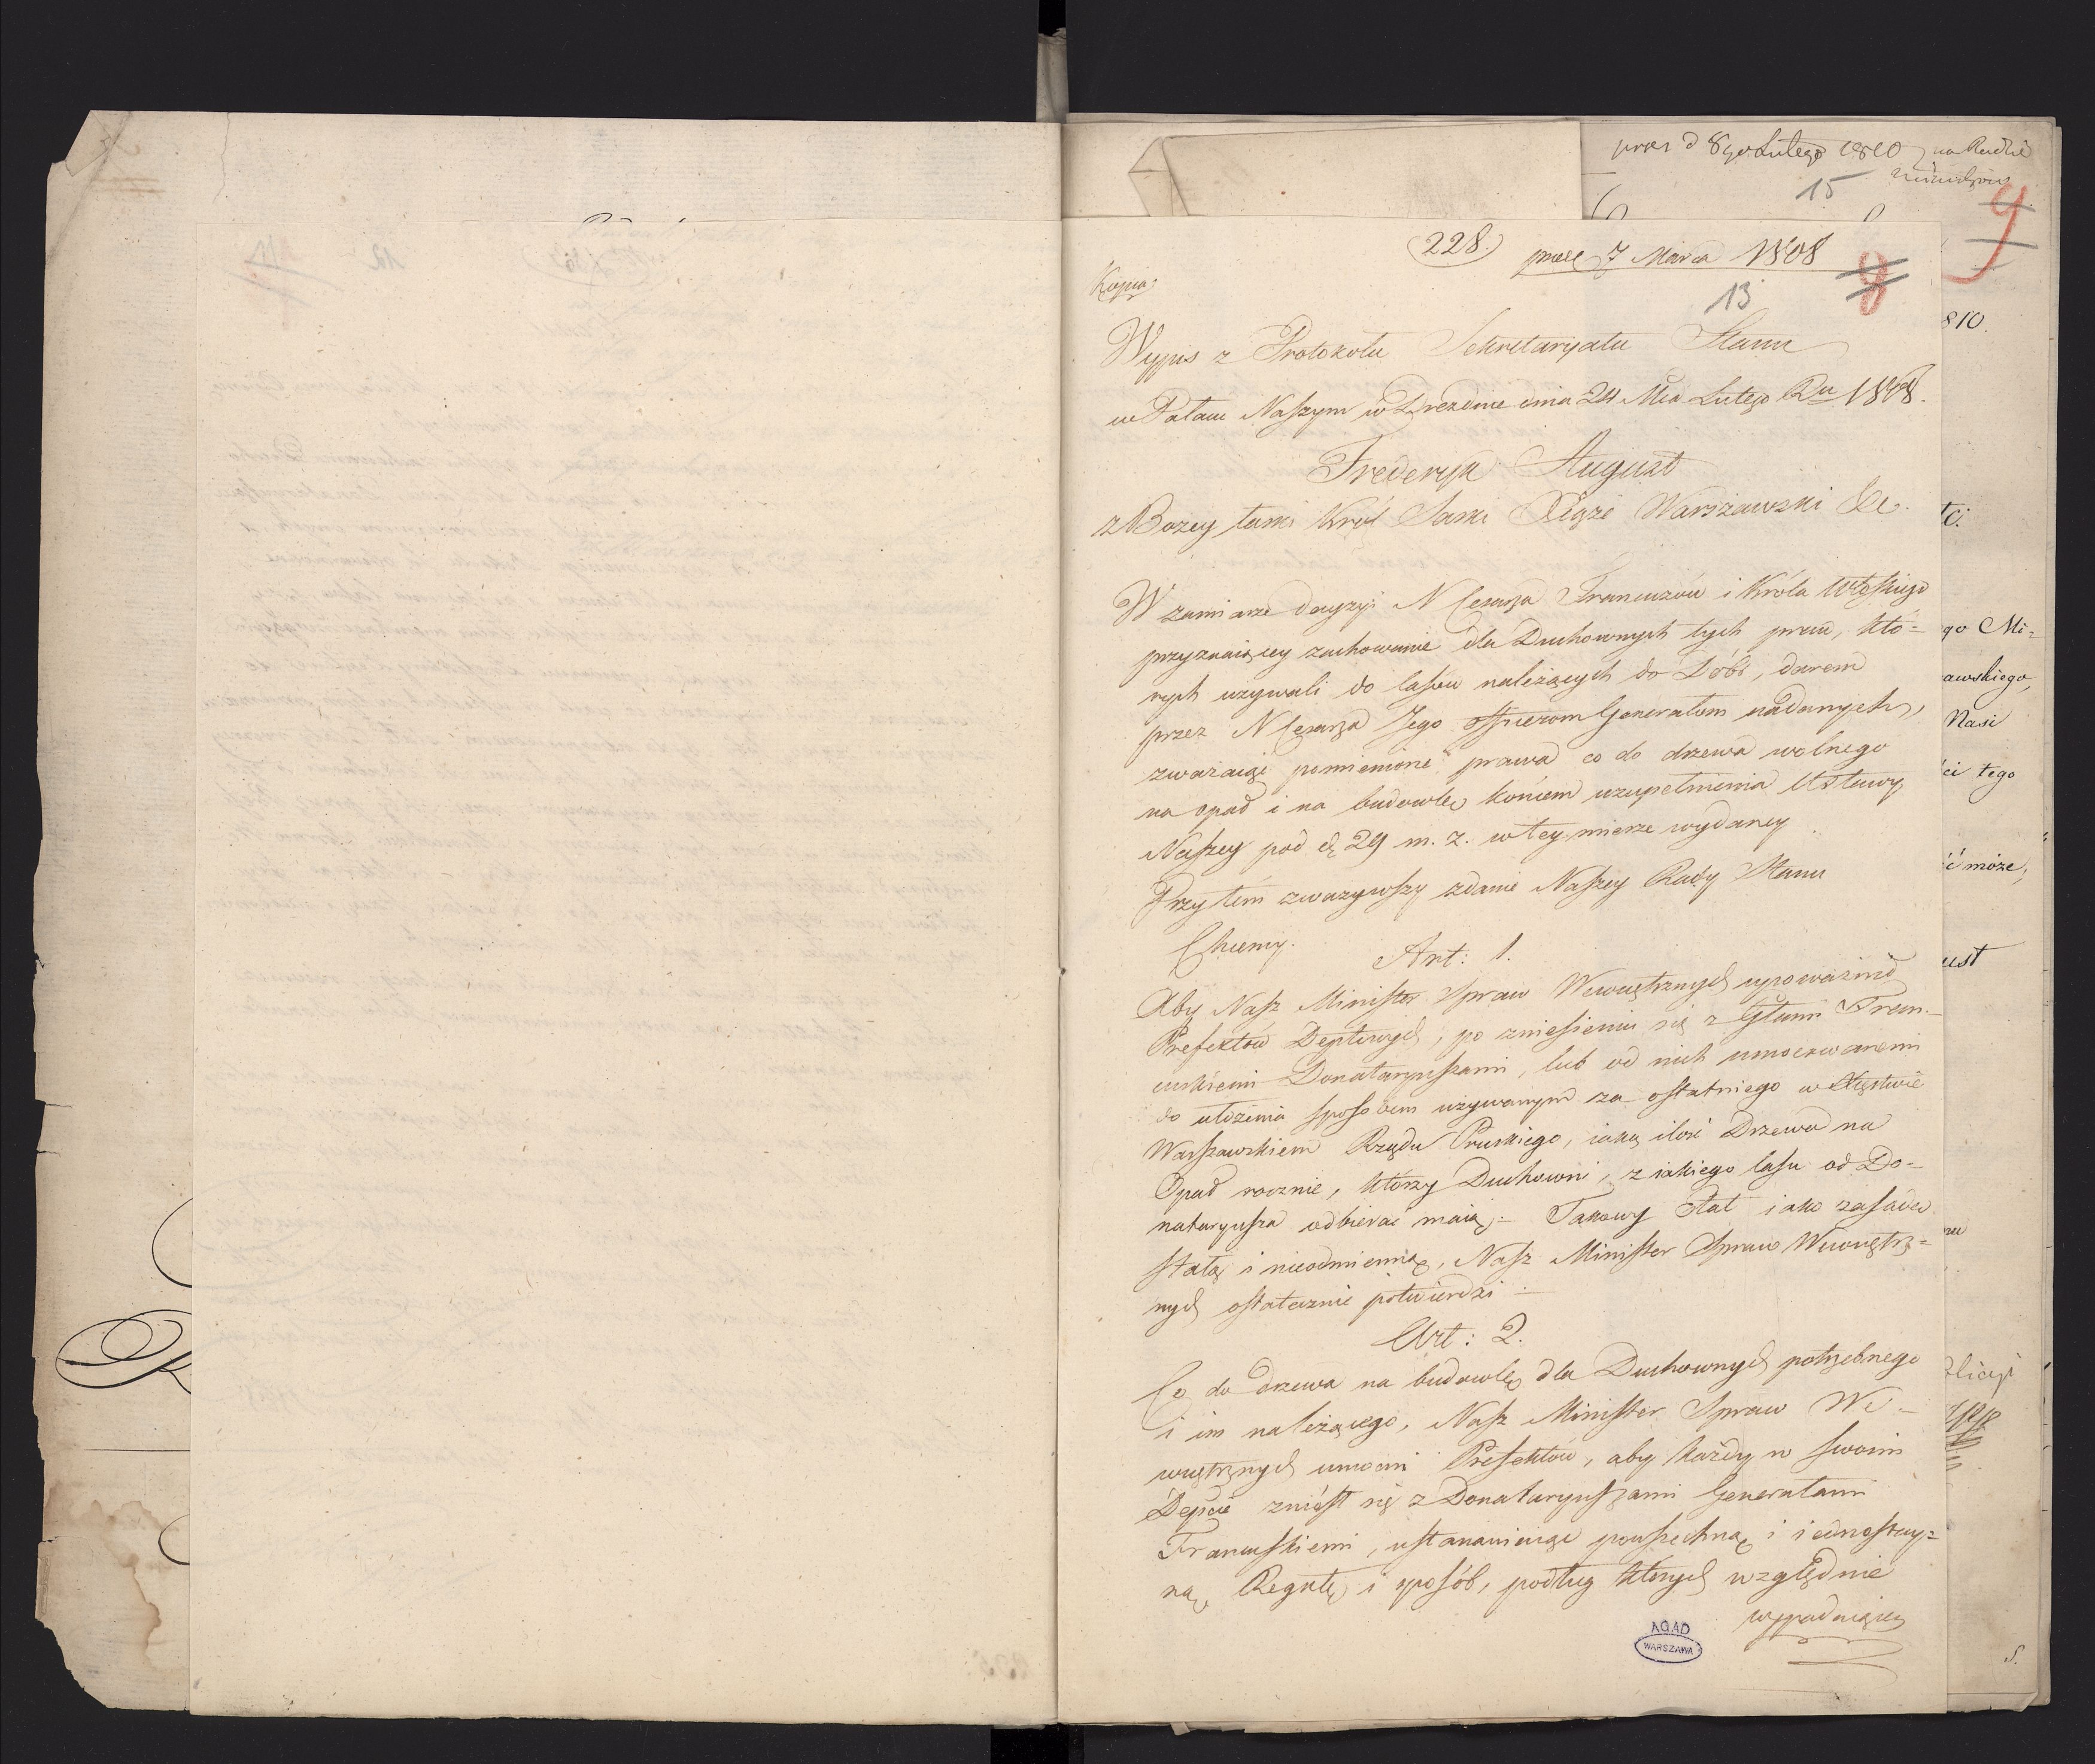 228.
praes 7 Marca 1808
8
13
Kopia
Wypis z Protokołu Sekretaryatu Stanu
w Pałacu Naszym w Dreznie dnia 24 Mca Lutego Ru 1808.
Frederyk August
z Bożey łaski Król Saski Xiąże Warszawski &c.
W zamiarze decyzyi N Cesarza Francuzów i Króla Włoskiego
przyznaiącey zachowanie dla Duchownych tych praw, któ=
rych używali do lasów należących do Dóbr, darem
przez N Cesarza Jego Officerom Generałom nadanych,
zważaiąc pomienione prawa co do drzewa wolnego
na opał i na budowlę końcem uzupełnienia Ustawy
Naszey pod d. 29 m. z. w tey mierze wydaney
Przytém zważywszy zdanie Naszey Rady Stanu
Chcemy.
Art: 1.
Aby Nasz Minister Spraw Wewnętrznych upoważnił
Prefektów Deptowych, po zniesieniu się z Głami Fran-
cuskiemi Donataryuszami, lub od nich umocowanemi
do ułożenia sposobem używanym za ostatniego w Xięstwie
Warszawskiem Rządu Pruskiego, iaką ilość Drzewa na
Opał rocznie, którzy Duchowni, z iakiego lasu od Do-
nataryusza odbierać maią.- Takowy Etat iako zasadę
stałą i nieodmienną, Nasz Minister Spraw Wewnętrz=
nych ostatecznie potwierdzi.
Art: 2.
Co do drzewa na budowlę dla Duchownych potrzebnego
i im należącego, Nasz Minister Spraw We-
wnętrznych umocni Prefektów, aby każdy w swoim
Depcie zniósł się z Donataryuszami Generałami
Francuskiemi, ustanawiaiąc powszechną i iednostay=
ną Regułę i sposób, podług których względnie
wypadaiącey
AGAD
WARSZAWA
pres d 8go Lutego 1810 na Radzie
Ministrów
15
9
810.
go Mi=
awskiego,
Nasi
ci tego
ć może,
ust
S.